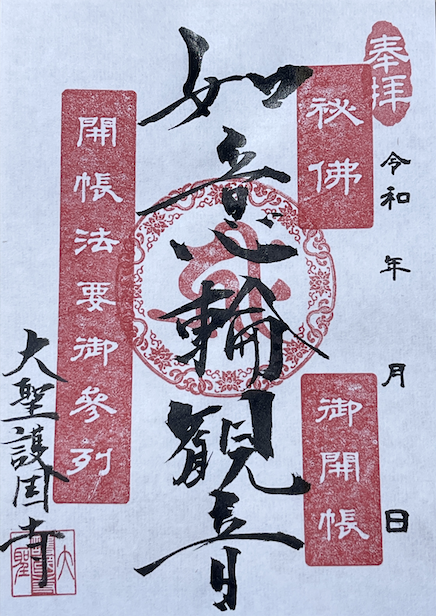 奉拝
令和 年 月 日
秘佛
御開帳
如意輪観音
開帳法要御参列
大聖護国寺